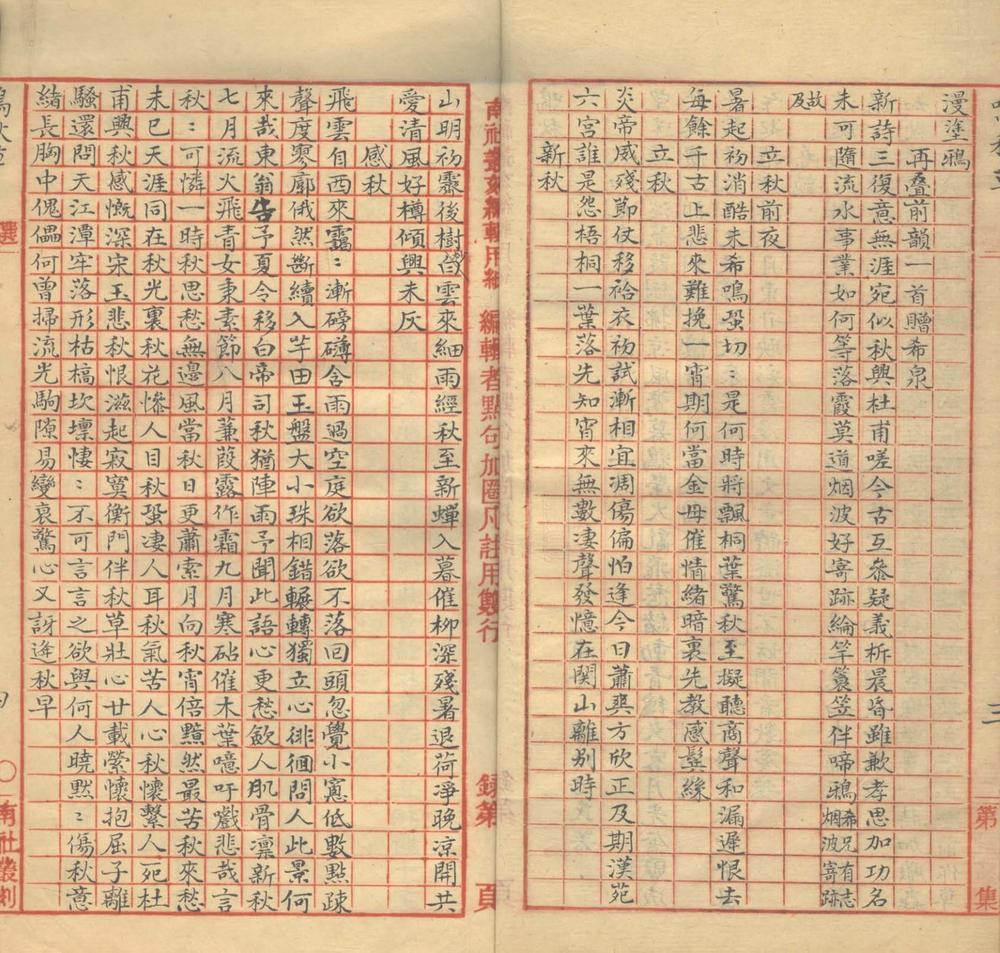 漫塗鴉
再叠前韻一首贈希泉
新詩三復意無涯宛似秋興杜甫嗟今古互叅疑義柝晨昏雖歉孝思加功名
未可隨流水事業如何等落霞莫道烟波好寄跡綸竿簑笠伴啼鴉希兄有志烟波寄跡
故及
立秋前夜
暑起初消酷未希鳴蛩切：是何時將飄桐葉驚秋至擬聽商聲和漏遲恨去
每餘千古上悲來難挽一宵期何當金母催情緒暗裏先教感髩絲
立秋
炎帝威殘節仗移袷衣初試漸相宜凋傷偏怕逢今日蕭爽方欣正及期漢苑
六宮誰是怨梧桐一葉落先知宵來無數凄聲發憶在関山離别時
新秋
第 集
南社叢刻編輯用紙 編輯者點句加圈凡註用雙行 録第 頁
山明初霽後樹杪白雲來細雨經秋至新蟬入暮催柳深殘暑退荷凈晚凉開共
愛清風好樽傾興未灰
感秋
飛雲自西來靄：漸磅礡含雨過空庭欲落欲不落回頭忽覺小窻低數點疎
聲度寥廓俄然斷續入芋田玉盤大小珠相錯輾轉獨立心徘徊問人此景何
來哉東翁告予夏令移白帝司秋猶陣雨予聞此語心更愁歛人肌骨凛新秋
七月流火飛青女秉素節八月蒹葭露作霜九月寒砧催木葉噫吁嚱悲哉言
秋：可憐一時秋思愁無邊風當秋日更蕭索月向秋宵倍黯然最苦秋來愁
未已天涯同在秋光裏秋花慘人目秋蛩凄人耳秋氣苦人心秋懷繫人死杜
甫興秋感慨深宋玉悲秋恨滋起寂寞衡門伴秋草壯心廿載縈懷抱屈子離
騷還問天江潭牢落形枯槁坎壈悽：不可言言之欲與何人曉默：傷秋意
緒長胸中傀儡何曾掃流光駒隙易變哀驚心又訝逢秋早
選
南社叢刻